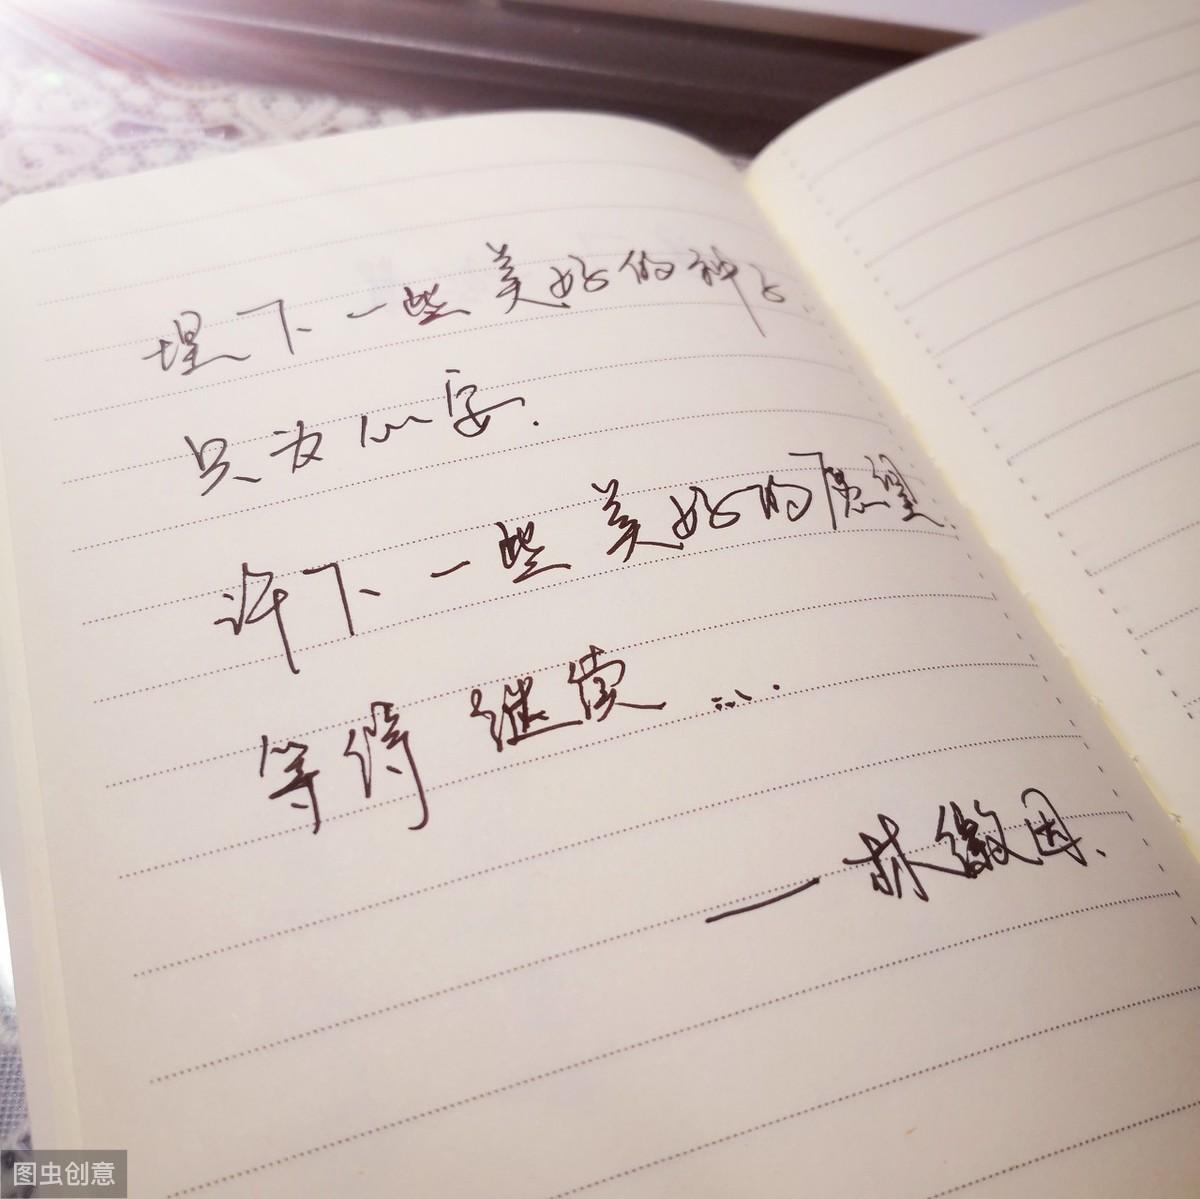 埋下一些美好的种子
只为心安.
许下一些美好的愿望.
等待继续……
——林徽因、
图虫创意